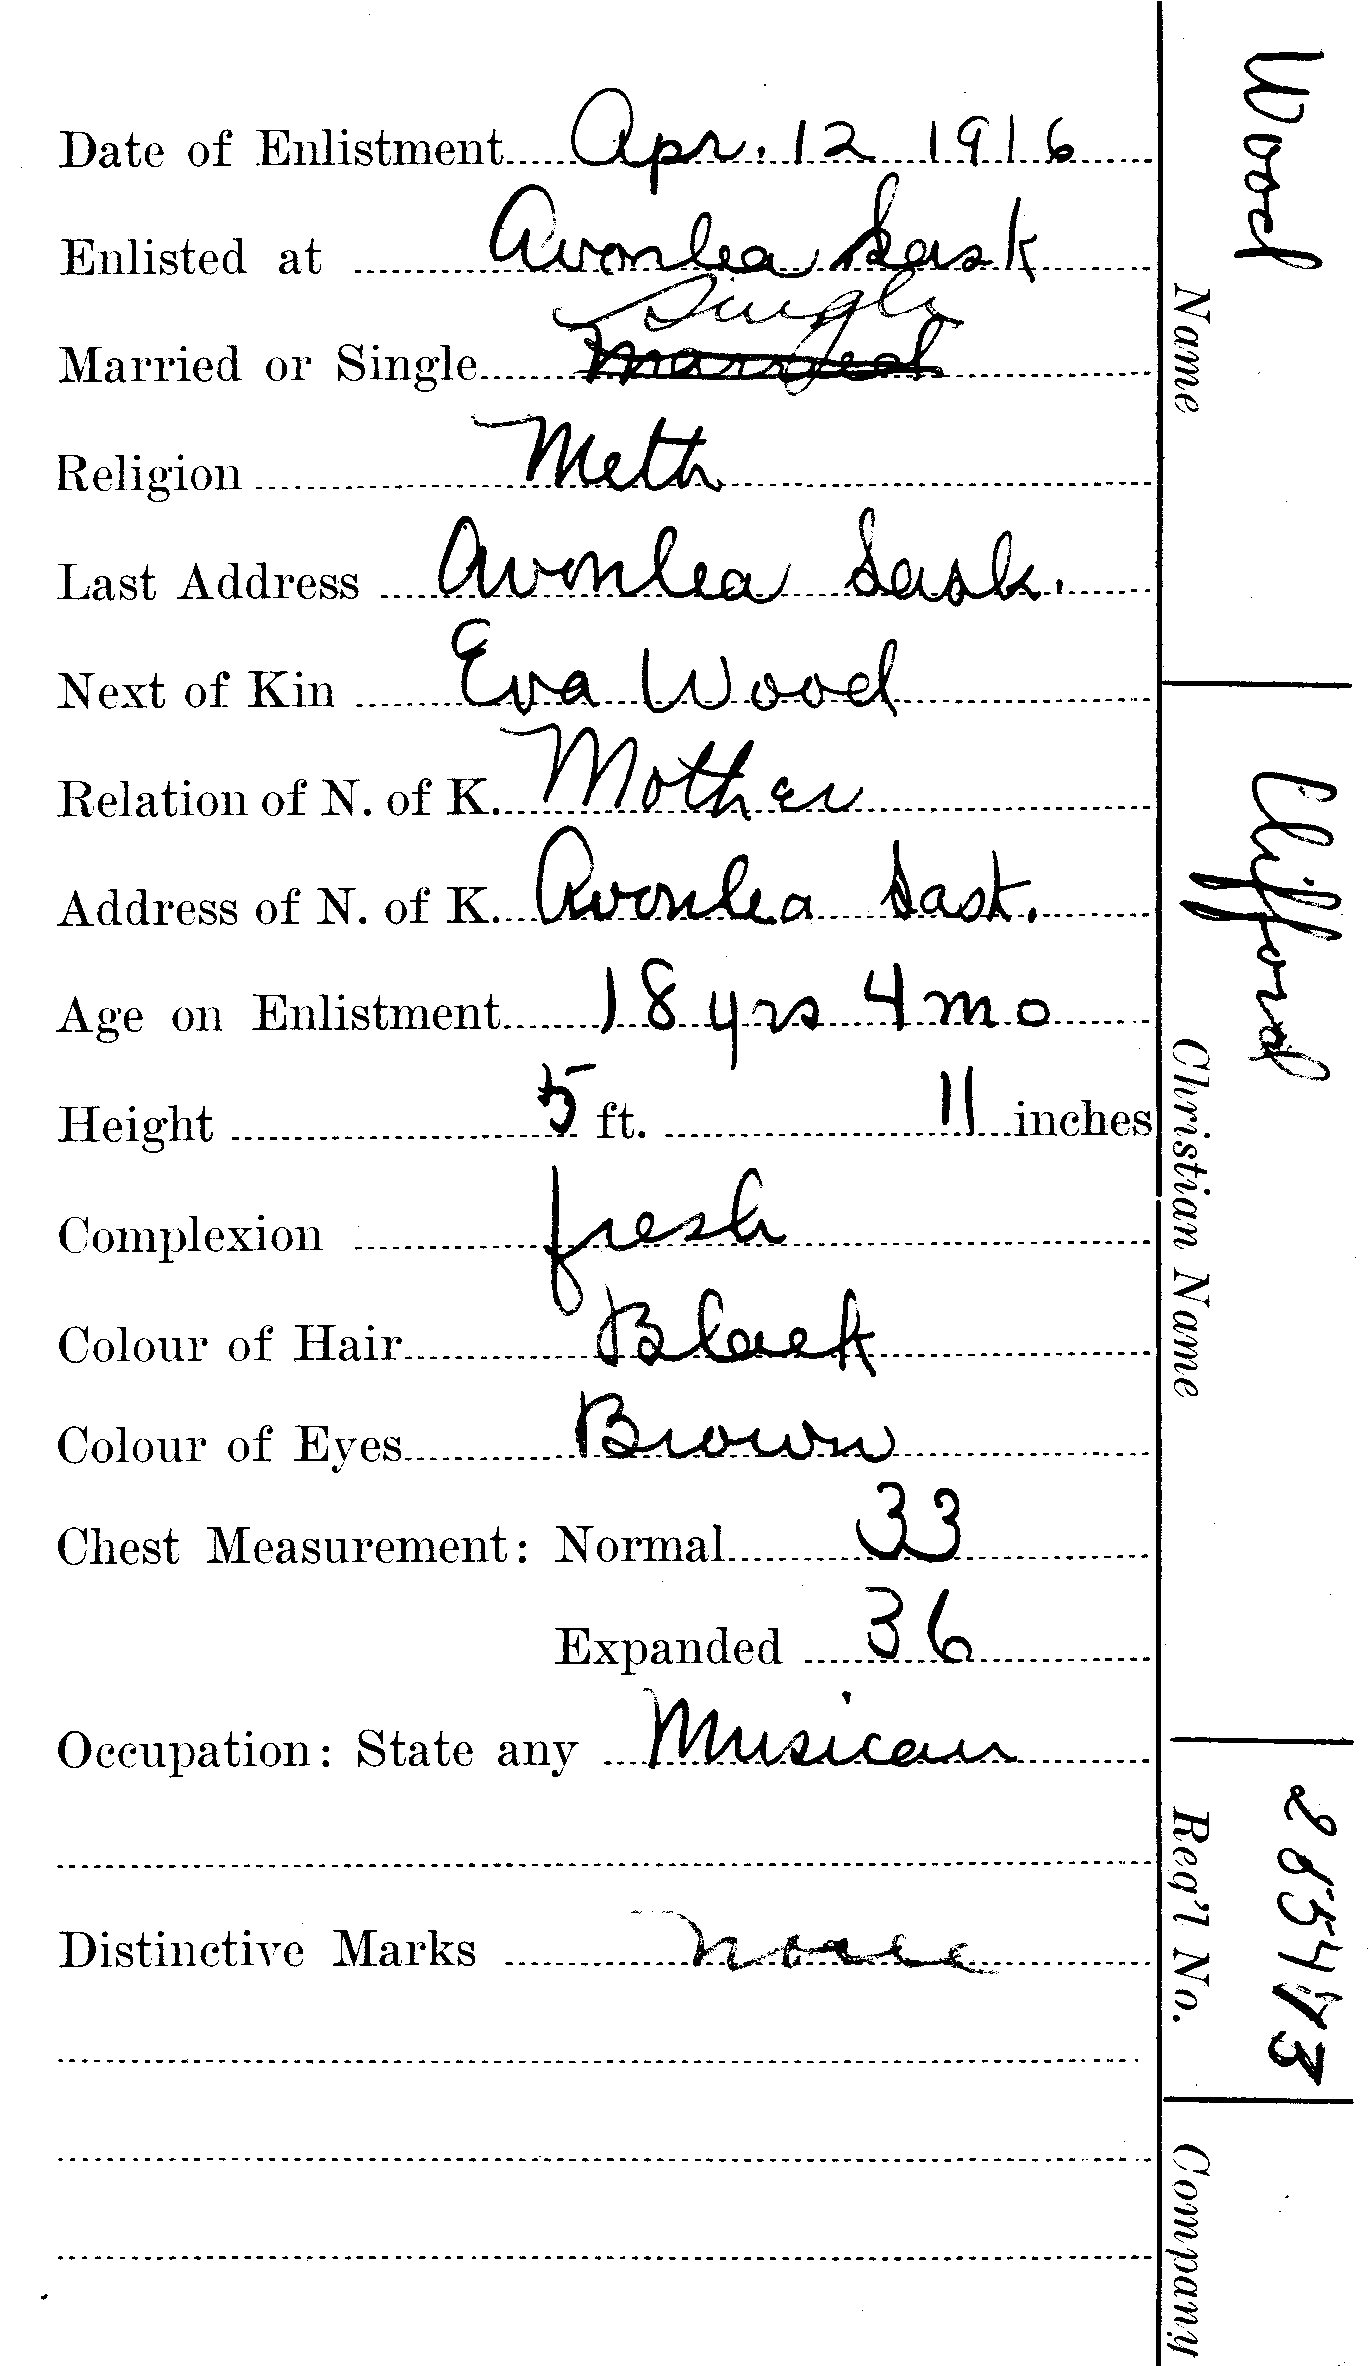 Date of Enlistment Apr. 12 1916
Enlisted at Avonlea Sask
Single
Married or Single Married
Religion Meth
Last Address Avonlea Sask.
Next of Kin Eva Wood
Relation of N. of K. Mother
Address of N. of K. Avonlea Sask.
Age on Enlistment 18 yrs 4 mo
Height 5 ft. 11 inches
Complexion fresh
Colour of Hair Black
Colour of Eyes Brown
Chest Measurement: Normal 33
Expanded 36
Occupation: State any Musican
Distinctive Marks none
Wood
Name
Clifford
Christian Name
Reg'l No.
Company